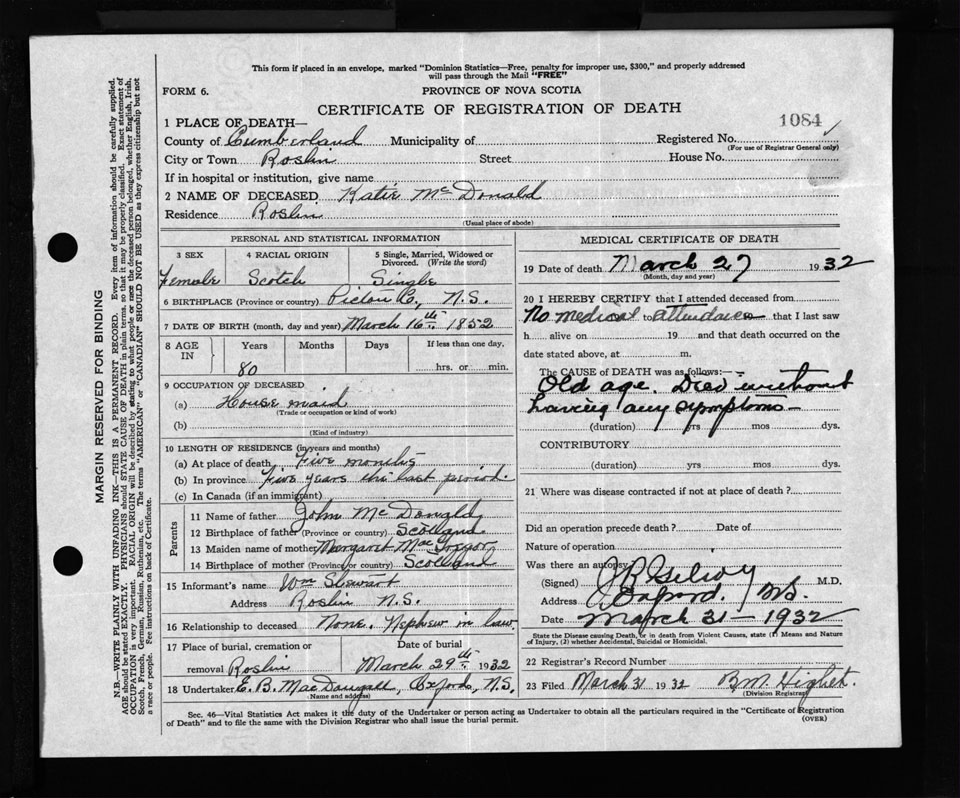 This form if placed in an envelope, marked "Dominion Statistics—Free, penalty for improper use, $300," and properly addressed
will pass through the Mail "FREE"
FORM 6.
PROVINCE OF NOVA SCOTIA
CERTIFICATE OF REGISTRATION OF DEATH
1084
1 PLACE OF DEATH—
County of Cumberland Municipality of Registered No.
(For use of Registrar General only)
City or Town Roslin Street House No.
If in hospital or institution, give name
2 NAME OF DECEASED Katie McDonald
Residence Roslin
(Usual place of abode)
PERSONAL AND STATISTICAL INFORMATION
3 SEX 4 RACIAL ORIGIN 5 Single, Married, Widowed or
Divorced. (Write the word)
Female Scotch Single
6 BIRTHPLACE (Province or country) Pictou Co, N.S.
7 DATE OF BIRTH (month, day and year) March 16th 1852
8 AGE IN Years Months Days If less than one day,
80 hrs. or min.
9 OCCUPATION OF DECEASED
(a) House maid
(Trade or occupation or kind of work)
(b)
(Kind of industry)
10 LENGTH OF RESIDENCE (in years and months)
(a) At place of death Five months
(b) In province Five years the last period.
(c) In Canada (if an immigrant)
Parents
11 Name of father John McDonald
12 Birthplace of father (Province or country) Scotland
13 Maiden name of mother Margaret MacGregor
14 Birthplace of mother (Province or country) Scotland
15 Informant's name Wm Stewart
Address Roslin N.S.
16 Relationship to deceased None. Nephew in law.
17 Place of burial, cremation or Date of burial
removal Roslin March 29th 1932
18 Undertaker E. B. MacDougall, Oxford, N.S.
Name and address
MEDICAL CERTIFICATE OF DEATH
19 Date of death March 27 1932
(Month, day and year)
20 I HEREBY CERTIFY that I attended deceased from
No medical to attendance that I last saw
h alive on 19 and that death occurred on the
date stated above, at m.
The CAUSE OF DEATH was as follows:—
Old age. Died without
having any symptoms —
(duration) yrs mos dys.
CONTRIBUTORY
(duration) yrs mos dys.
21 Where was disease contracted if not at place of death?
Did an operation precede death? Date of
Nature of operation
Was there an autopsy
(Signed) J R Gilroy M.D.
Address Oxford, N.S.
Date March 31 — 1932
State the Disease causing Death, or in death from Violent Causes, state (1) Means and Nature
of Injury, (2) whether Accidental, Suicidal or Homicidal.
22 Registrar's Record Number
23 Filed March 31 1932 B.M. Highet.
(Division Registrar)
Sec. 46—Vital Statistics Act makes it the duty of the Undertaker or person acting as Undertaker to obtain all the particulars required in the "Certificate of Registration
of Death" and to file the same with the Division Registrar who shall issue the burial permit.
(OVER)
MARGIN RESERVED FOR BINDING
N.B.—WRITE PLAINLY WITH UNFADING INK—THIS IS A PERMANENT RECORD. Every item of information should be carefully supplied.
AGE should be stated EXACTLY. PHYSICIANS should STATE CAUSE OF DEATH in plain terms, so that it may be properly classified. Exact statement of
OCCUPATION is very important. RACIAL ORIGIN will be described by stating to what people or race the deceased person belonged, whether English, Irish,
Scotch, French, German, Russian, Ruthenian, etc. The terms "AMERICAN" or "CANADIAN" SHOULD NOT BE USED as they express citizenship but not
a race or people. See instructions on back of Certificate.